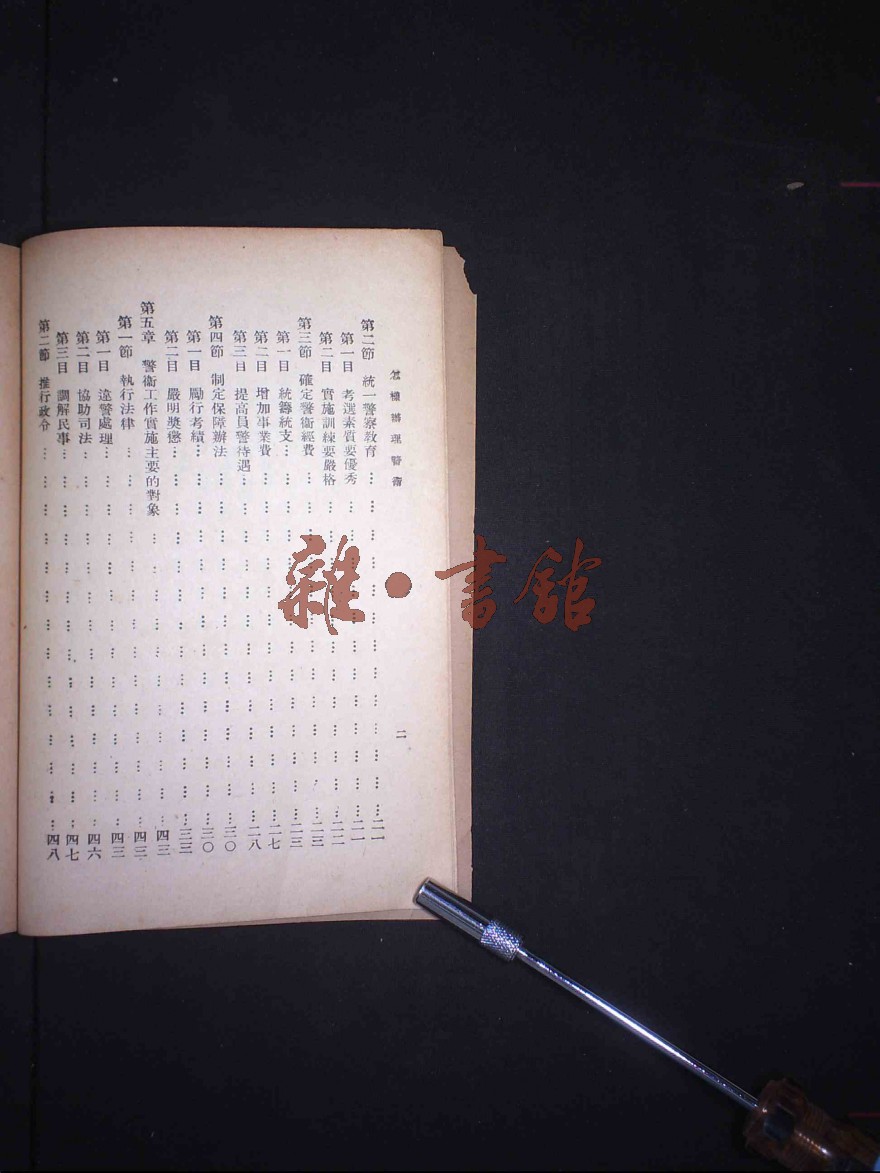 怎樣辦理警衛 二
第二節 統一警察教育……二一
第一目 考選素質要優秀……二一
第二目 實施訓練要嚴格……二二
第三節 確定警衛經費……二三
第一目 統籌統支……二三
第二目 增加事業費……二七
第三目 提高員警待遇……二八
第四節 制定保障辦法……三〇
第一目 勵行考績……三〇
第二目 嚴明獎懲……三三
第五章 警衛工作實施主要的對象……四三
第一節 執行法律……四三
第一目 違警處理……四三
第二目 協助司法……四六
第三目 調解民事……四七
第二節 推行政令……四八
雜·書館